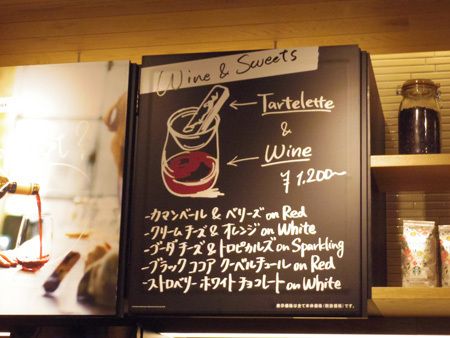 Wine & Sweets
Tartelette
&
Wine
¥1,200〜
ーカマンベール & ベリーズ on Red
ークリームチーズ & オレンジ on White
ーゴーダチーズ & トロピカルズ on Sparkling
ーブラックココア クーベルチュール on Red
ーストロベリー ホワイト チョコレート on White
STARBUCKS